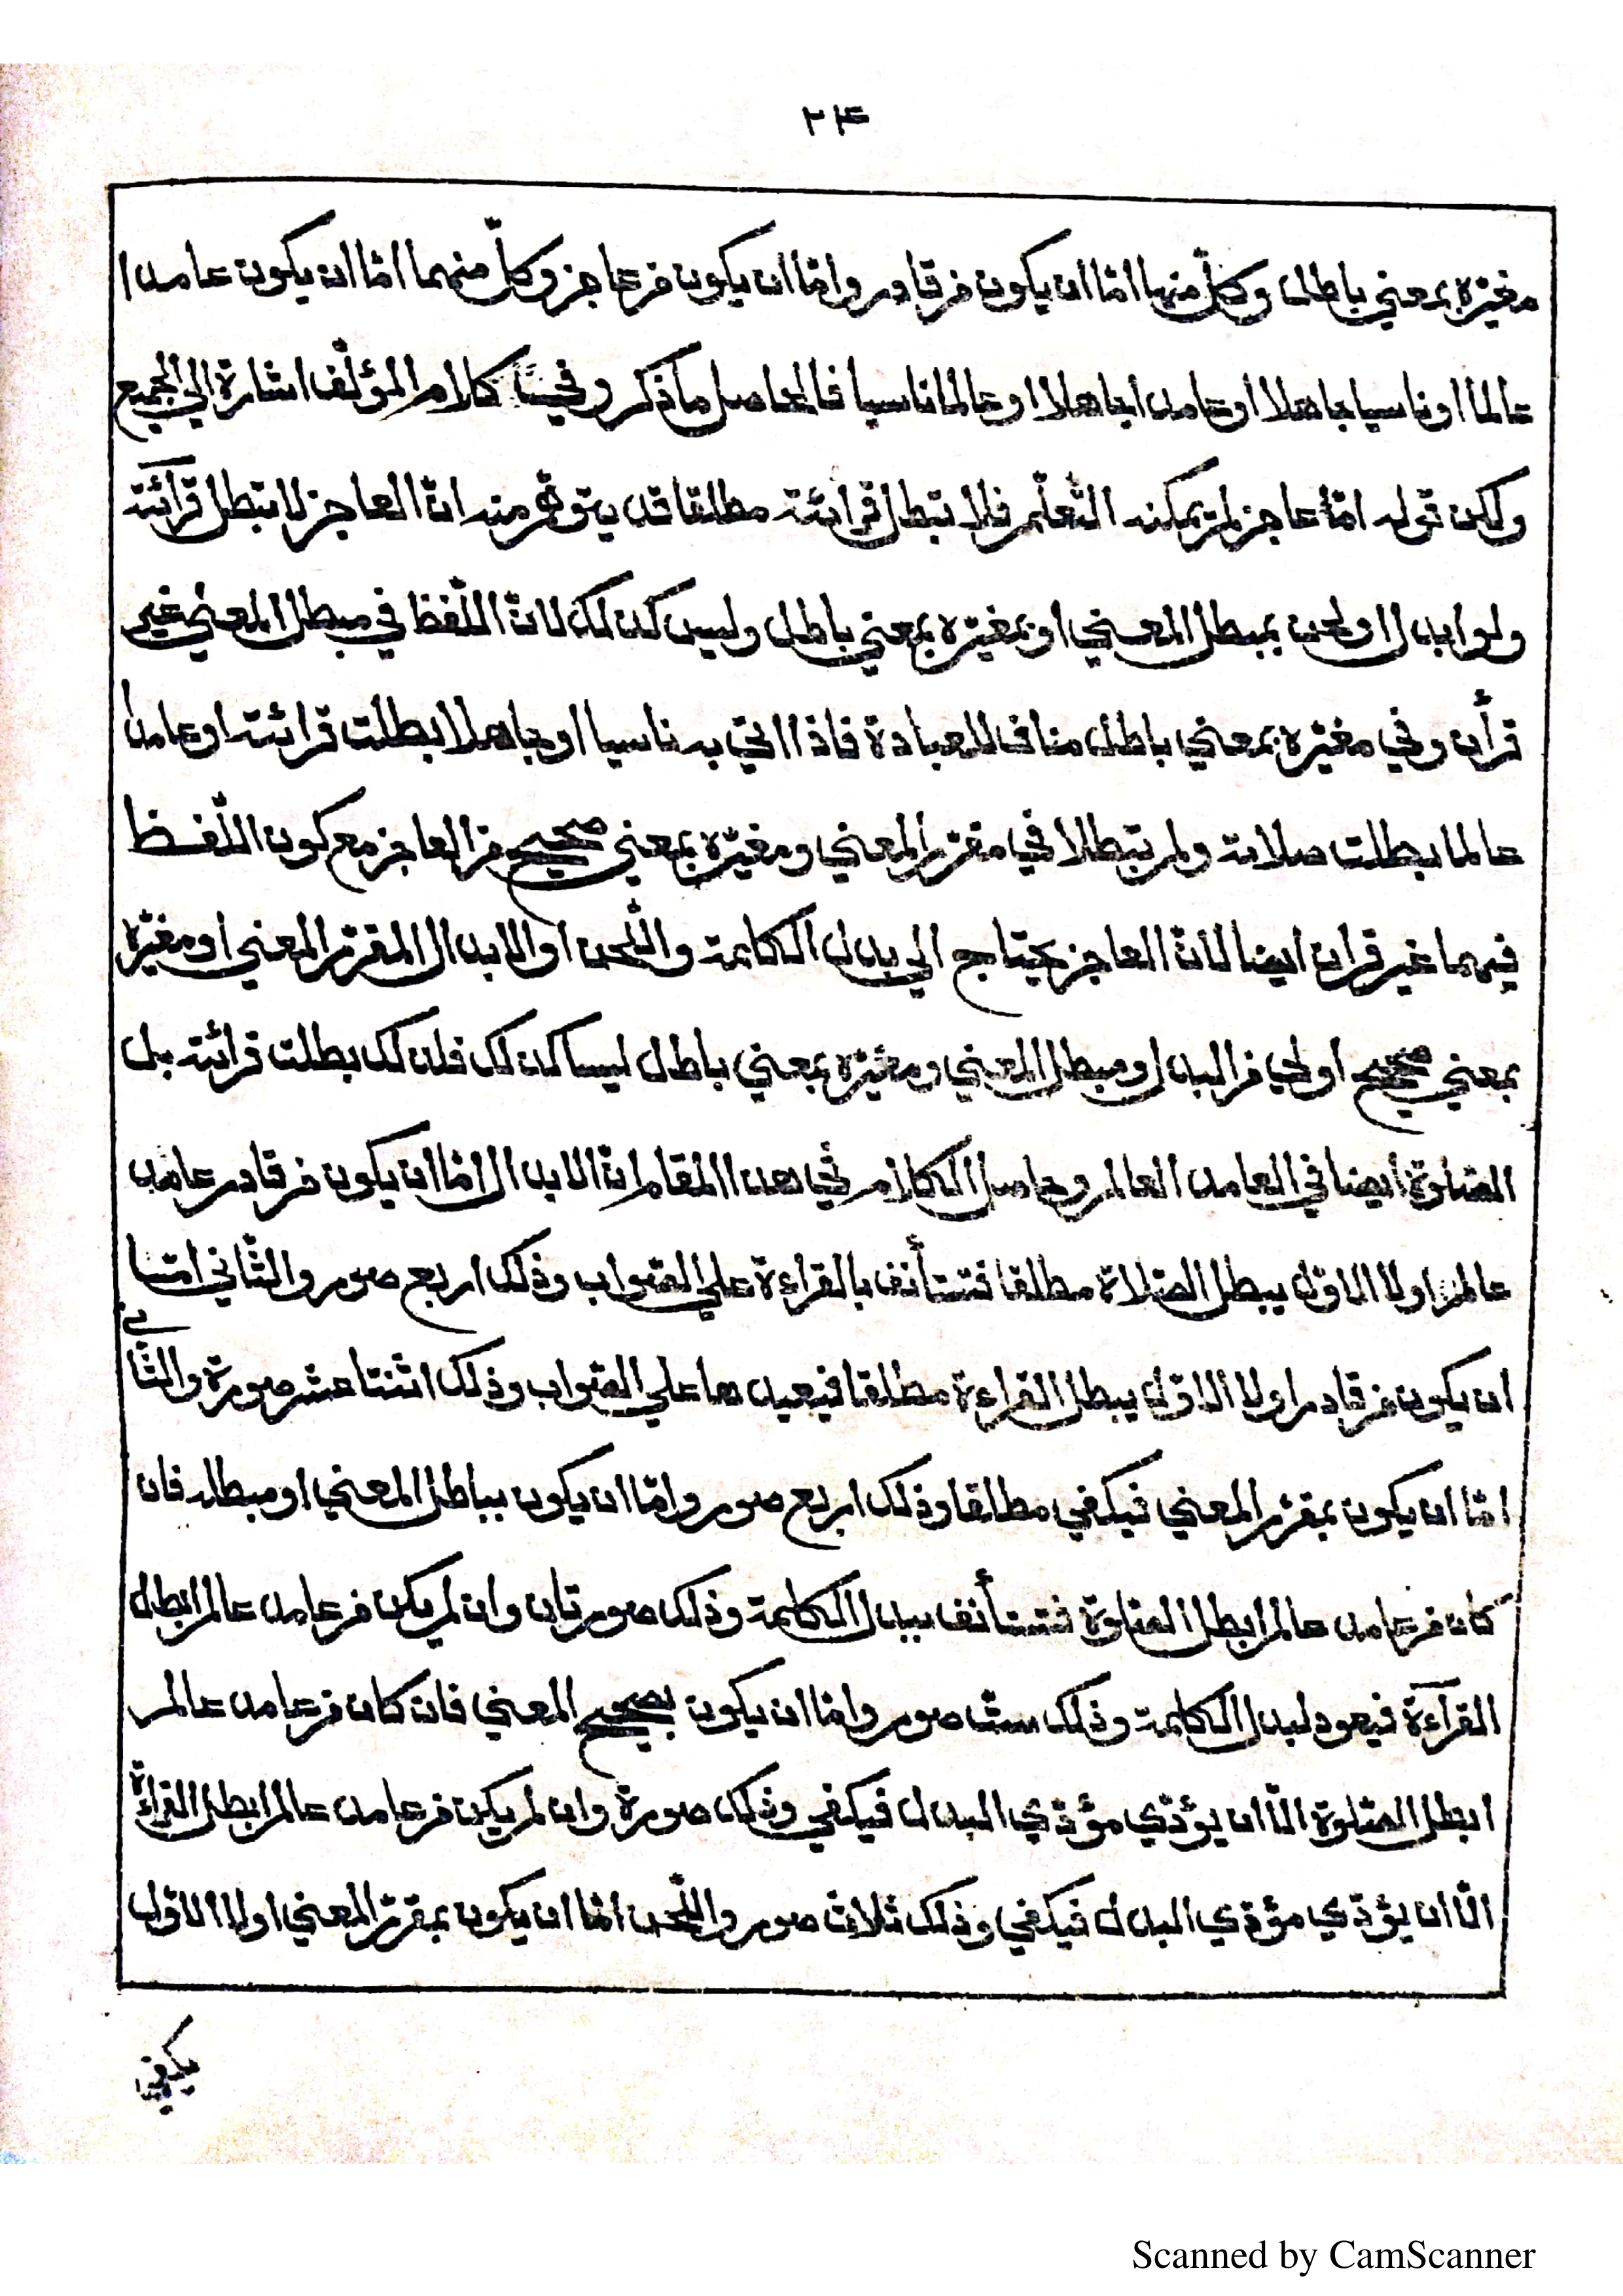 ٢٤
مغيّره بمعني باطل وكلّ منها امّا ان يكون من قادر وامّا ان يكون من عاجز وكلّ منهما امّا ان يكون عامدا
عالما او ناسيا جاهلا او عامدا جاهلا او عالما ناسيا فالحاصل ما ذكر وفي كلام المؤلّف اشارة الي الجميع
ولكن قوله امّا عاجز لم يمكنه التّعلّم فلا تبطل قرائته مطلقا قد يتوهّم منه انّ العاجز لا تبطل قرائته
ولو ابدل او لحن بمبطل المعني او بمغيّره بمعني باطل وليس كذلك لانّ اللّفظ في مبطل المعني غير
قرأن وفي مغيّره بمعني باطل مناف للعبادة فاذا اتي به ناسيا او جاهلا بطلت قرائته او عامدا
عالما بطلت صلاته ولم تبطلا في مقرّر المعني ومغيّره بمعني صحيح من العاجز مع كون اللّفظ
فيهما غير قران ايضا لانّ العاجز يحتاج الي بدل الكلمة واللّحن او الابدال المقرّر المعني او مغيّره
بمعني صحيح اولي من البدل ومبطل المعني ومغيّره بمعني باطل ليسا كذلك فلذلك بطلت قرائته بل
الصّلوة ايضا في العامد العالم وحاصل الكلام في هذا المقام انّ الابدال امّا ان يكون من قادر عامد
عالم او لا الاوّل يبطل الصّلاة مطلقا فتستأنف بالقراءة علي الصّواب وذلك اربع صور والثّاني امّا
ان يكون من قادر او لا الاوّل يبطل القراءة مطلقا فيعيدها علي الصّواب وذلك اثنتا عشر صورة والثّاني
امّا ان يكون بمقرّر المعني فيكفي مطلقا وذلك اربع صور وامّا ان يكون بباطل المعني او مبطله فان
كان من عامد عالم ابطل الصّلوة فتستأنف ببدل الكلمة وذلك صورتان وان لم يكن من عامد عالم ابطل
القرآءة فيعود لبدل الكلمة وذلك ستّ صور وامّا ان يكون بصحيح المعني فان كان من عامد عالم
ابطل الصّلوة الّا ان يؤدّي مؤدّي البدل فيكفي وذلك صورة وان لم يكن من عامد عالم ابطل القراءة
الّا ان يؤدّي مؤدّي البدل فيكفي وذلك ثلاث صور واللّحن امّا ان يكون بمقرّر المعني او لا الاوّل
يكفي
Scanned by CamScanner